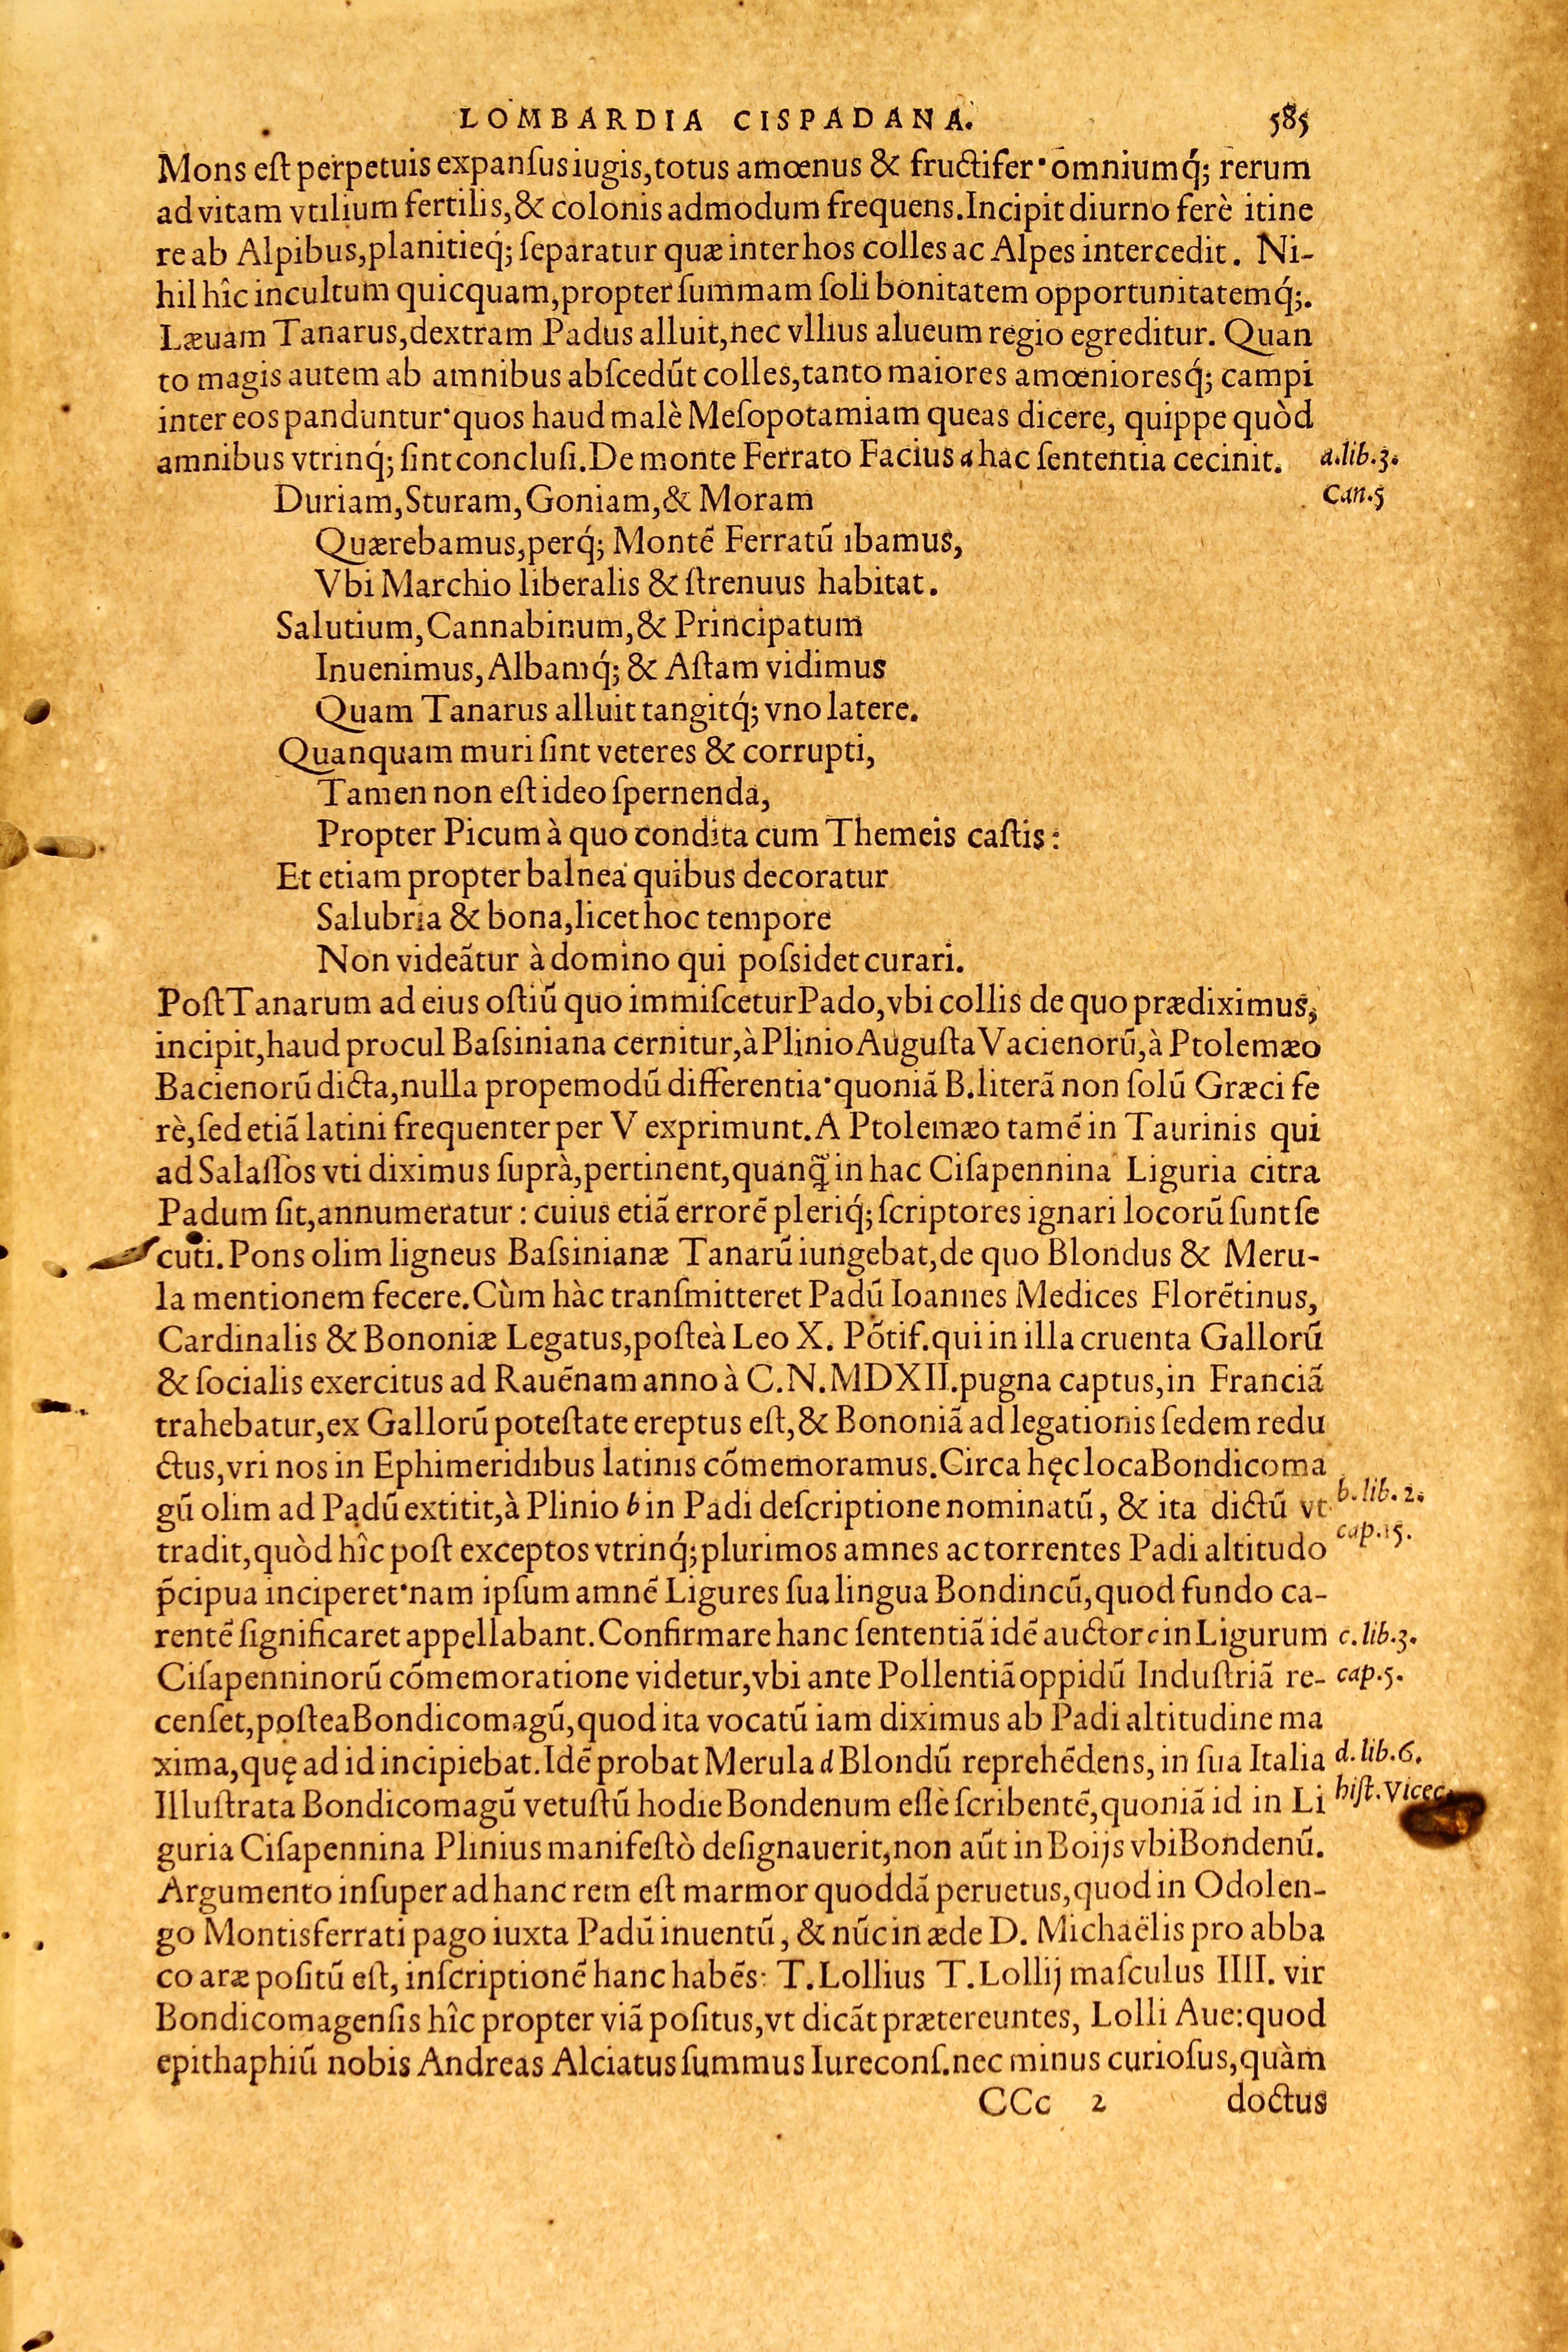 LOMBARDIA CISPADANA. 585
Mons eſt perpetuis expanſus iugis, totus amœnus & fructifer· omniumq́; rerum
ad vitam vtilium fertilis, & colonis admodum frequens. Incipit diurno ferè itine
re ab Alpibus, planitieq́; ſeparatur quæ inter hos colles ac Alpes intercedit. Ni-
hil hîc incultum quicquam, propter ſummam ſoli bonitatem opportunitatemq́;.
Læuam Tanarus, dextram Padus alluit, nec vllius alueum regio egreditur. Quan
to magis autem ab amnibus abſcedũt colles, tanto maiores amœnioresq́; campi
inter eos panduntur· quos haud malè Meſopotamiam queas dicere, quippe quòd
amnibus vtrinq́; ſint concluſi. De monte Ferrato Facius a hac ſententia cecinit. a. lib. 3.
Can. 5
Duriam, Sturam, Goniam, & Moram
Quærebamus, perq́; Montẽ Ferratũ ibamus,
Vbi Marchio liberalis & ſtrenuus habitat.
Salutium, Cannabinum, & Principatum
Inuenimus, Albamq́; & Aſtam vidimus
Quam Tanarus alluit tangitq́; vno latere.
Quanquam muri ſint veteres & corrupti,
Tamen non eſt ideo ſpernenda,
Propter Picum à quo condita cum Themeis caſtis:
Et etiam propter balnea quibus decoratur
Salubria & bona, licet hoc tempore
Non videãtur à domino qui poſsidet curari.
Poſt Tanarum ad eius oſtiũ quo immiſcetur Pado, vbi collis de quo prædiximus,
incipit, haud procul Baſsiniana cernitur, à Plinio Auguſta Vacienorũ, à Ptolemæo
Bacienorũ dicta, nulla propemodũ differentia· quoniã B. literã non ſolũ Græci fe
rè, ſed etiã latini frequenter per V exprimunt. A Ptolemæo tamẽ in Taurinis qui
ad Salaſſos vti diximus ſuprà, pertinent, quanq̃ in hac Ciſapennina Liguria citra
Padum ſit, annumeratur: cuius etiã errorẽ pleriq́; ſcriptores ignari locorũ ſunt ſe
cuti. Pons olim ligneus Baſsinianæ Tanarũ iungebat, de quo Blondus & Meru-
la mentionem fecere. Cùm hàc tranſmitteret Padũ Ioannes Medices Florẽtinus,
Cardinalis & Bononiæ Legatus, poſteà Leo X. Põtif. qui in illa cruenta Gallorũ
& ſocialis exercitus ad Rauẽnam anno à C. N. MDXII. pugna captus, in Franciã
trahebatur, ex Gallorũ poteſtate ereptus eſt, & Bononiã ad legationis ſedem redu
ctus, vri nos in Ephimeridibus latinis cõmemoramus. Circa hęc loca Bondicoma
gũ olim ad Padũ extitit, à Plinio b in Padi deſcriptione nominatũ, & ita dictũ vt b. lib. 2.
tradit, quòd hîc poſt exceptos vtrinq́; plurimos amnes ac torrentes Padi altitudo cap. 15.
p̃cipua inciperet· nam ipſum amnẽ Ligures ſua lingua Bondincũ, quod fundo ca-
rentẽ ſignificaret appellabant. Confirmare hanc ſententiã idẽ auctor c in Ligurum c. lib. 3.
Ciſapenninorũ cõmemoratione videtur, vbi ante Pollentiã oppidũ Induſtriã re- cap. 5.
cenſet, poſtea Bondicomagũ, quod ita vocatũ iam diximus ab Padi altitudine ma
xima, quę ad id incipiebat. Idẽ probat Merula d Blondũ reprehẽdens, in ſua Italia d. lib. 6.
Illuſtrata Bondicomagũ vetuſtũ hodie Bondenum eſſè ſcribentẽ, quoniã id in Li hiſt. Vicec.
guria Ciſapennina Plinius manifeſtò deſignauerit, non aũt in Boijs vbi Bondenũ.
Argumento inſuper ad hanc rem eſt marmor quoddã peruetus, quod in Odolen-
go Montisferrati pago iuxta Padũ inuentũ, & nũc in æde D. Michaëlis pro abba
co aræ poſitũ eſt, inſcriptionẽ hanc habẽs: T. Lollius T. Lollij maſculus IIII. vir
Bondicomagenſis hîc propter viã poſitus, vt dicãt prætereuntes, Lolli Aue: quod
epithaphiũ nobis Andreas Alciatus ſummus Iureconſ. nec minus curioſus, quàm
CCc 2 doctus